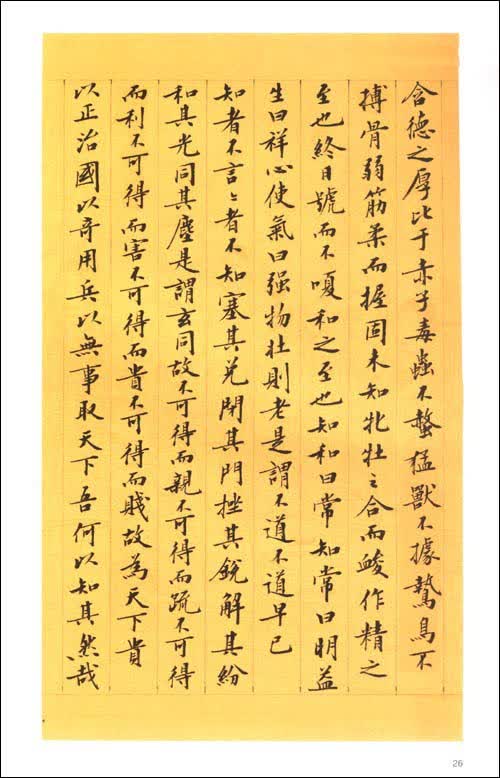 含德之厚比于赤子毒蟲不螫猛獸不據鷙鳥不
搏骨弱筋柔而握固未知牝牡之合而䘒作精之
至也終日號而不嗄和之至也知和曰常知常曰明益
生曰祥心使氣曰强物壯則老是謂不道不道早已
知者不言言者不知塞其兑閉其門挫其銳解其紛
和其光同其塵是謂玄同故不可得而親不可得而疏不可得
而利不可得而害不可得而貴不可得而賤故為天下貴
以正治國以奇用兵以無事取天下吾何以知其然哉
26